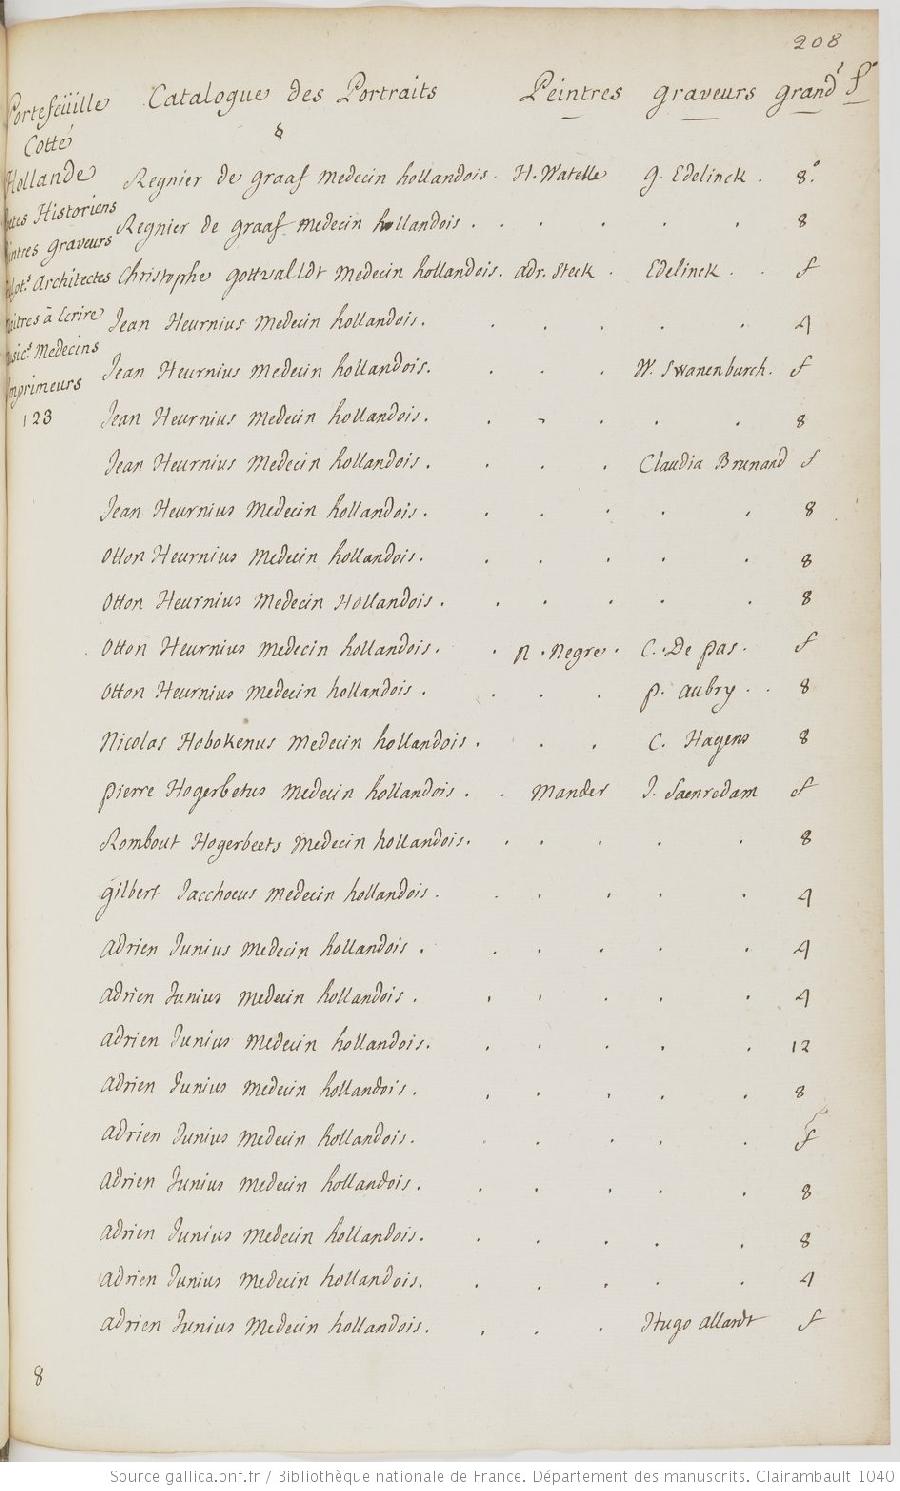 208
Portefeüille Catalogue des Portraits Peintres graveurs grandr fo
Cotté 8
Hollande
Regnier de graaf medecin hollandois. H. Watelle g. Edelinck. 8o.
Historiens
Regnier de graaf medecin hollandois . . . . . 8
graveurs
Architectes Christophe gottvaldt medecin hollandois. adr. Steck . Edelinck . . f
à Ecrire Jean Heurnius medecin hollandois. . . . . . 4
Medecins
Jean Heurnius medecin hollandois. . . . W. Swanenburch. f
Imprimeurs
123 Jean Heurnius medecin hollandois. . . . . . 8
Jean Heurnius medecin hollandois. . . . Claudia Brunand f
Jean Heurnius medecin hollandois. . . . . . 8
Otton Heurnius medecin hollandois. . . . . . 8
Otton Heurnius medecin Hollandois. . . . . . 8
Otton Heurnius medecin hollandois. . n. Negre. C. De pas. f
Otton Heurnius medecin hollandois. . . . p. aubry . . 8
Nicolas Hobokenus medecin hollandois. . . C. Hagens 8
pierre Hogerbetus medecin hollandois. . Mander J. Saenredam f
Rombout Hogerbeets medecin hollandois. . . . . . 8
gilbert Jacchoeus medecin hollandois. . . . . . 4
adrien Junius medecin hollandois. . . . . . 4
adrien Junius medecin hollandois. . . . . . 4
adrien Junius medecin hollandois. . . . . . 12
adrien Junius medecin hollandois. . . . . . 8
adrien Junius medecin hollandois. . . . . . f
adrien Junius medecin hollandois. . . . . . 8
adrien Junius medecin hollandois. . . . . . 8
adrien Junius medecin hollandois. . . . . . 4
adrien Junius medecin hollandois. . . . Hugo allardt f
8
Source gallica.bnf.fr / Bibliothèque nationale de France. Département des manuscrits. Clairambault 1040